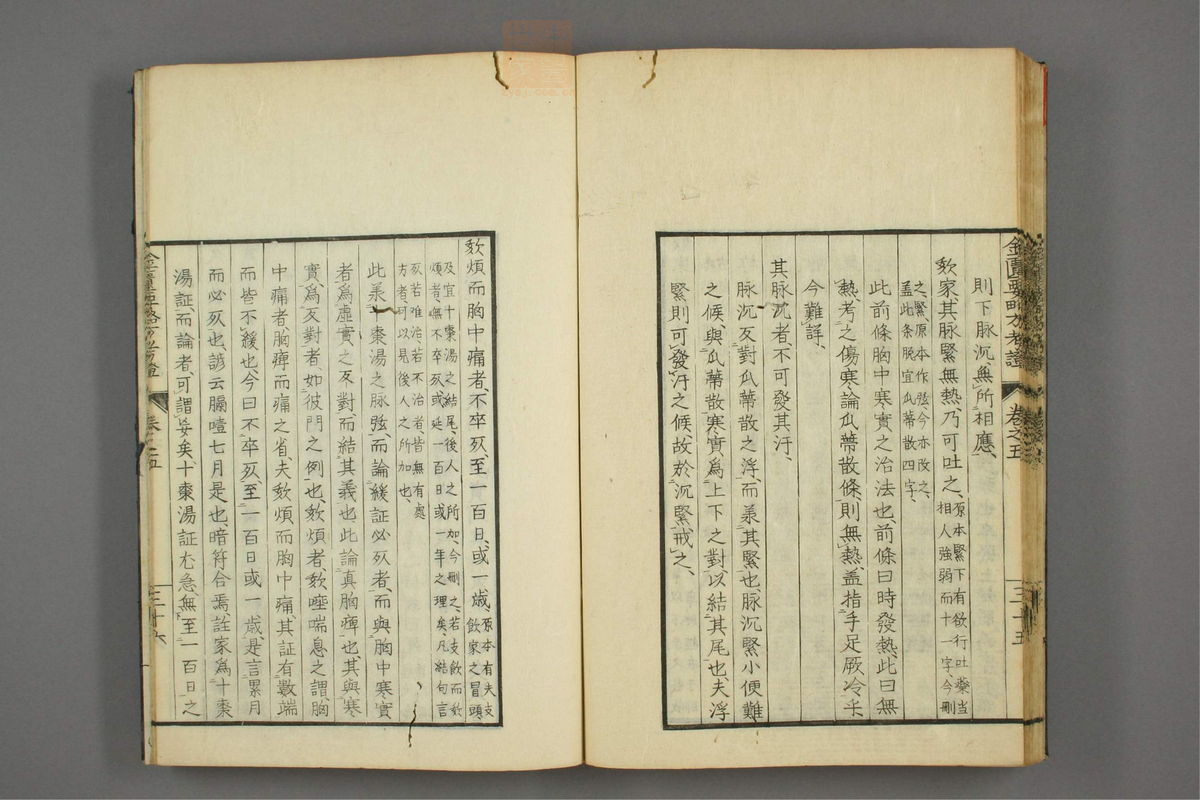 金匱要略方考證 卷之五 三十五
則下脉沉、無所相應、
欬家、其脉緊無熱、乃可吐之、原本緊下有欲行吐藥當
相人強弱而十一字、今刪
之、緊原本作弦、今亦改之、
蓋此条脫宜瓜蒂散四字、
此前條胸中寒實之治法也、前條曰時發熱、此曰無
熱、考之傷寒論瓜蒂散條、則無熱、蓋指手足厥冷乎、
今難詳、
其脉沉者、不可發其汗、
脉沉反對瓜蒂散之浮、而羕其緊也、脉沉緊小便難
之候、與瓜蒂散寒實為上下之對、以結其尾也、夫浮
緊則可發汗之候、故於沉緊戒之、
欬煩而胸中痛者、不卒死、至一百日、或一歲、原本有夫支
飲家之冒頭、
及宜十棗湯之結尾、後人之所加、今刪之、若支飲而欬
煩者、無不卒死、或延一百日或一年之理矣、凡結句言
死若難治、若不治者、皆無有處
方者、可以見後人之所加也、
此羕十棗湯之脉弦、而論緩証必死者、而與胸中寒實
者為虛實之反對、而結其義也、此論真胸痺也、其與寒
實、為反對者、如彼門之例也、欬煩者、欬唾喘息之謂、胸
中痛者、胸痺而痛之省、夫欬煩而胸中痛、其証有數端
而皆不緩也、今曰不卒死、至一百日或一歲、是言累月
而必死也、諺云膈噎七月是也、暗符合焉、註家為十棗
湯証而論者、可謂妄矣、十棗湯証尤急、無至一百日之
金匱要略方考證 卷之五 三十六